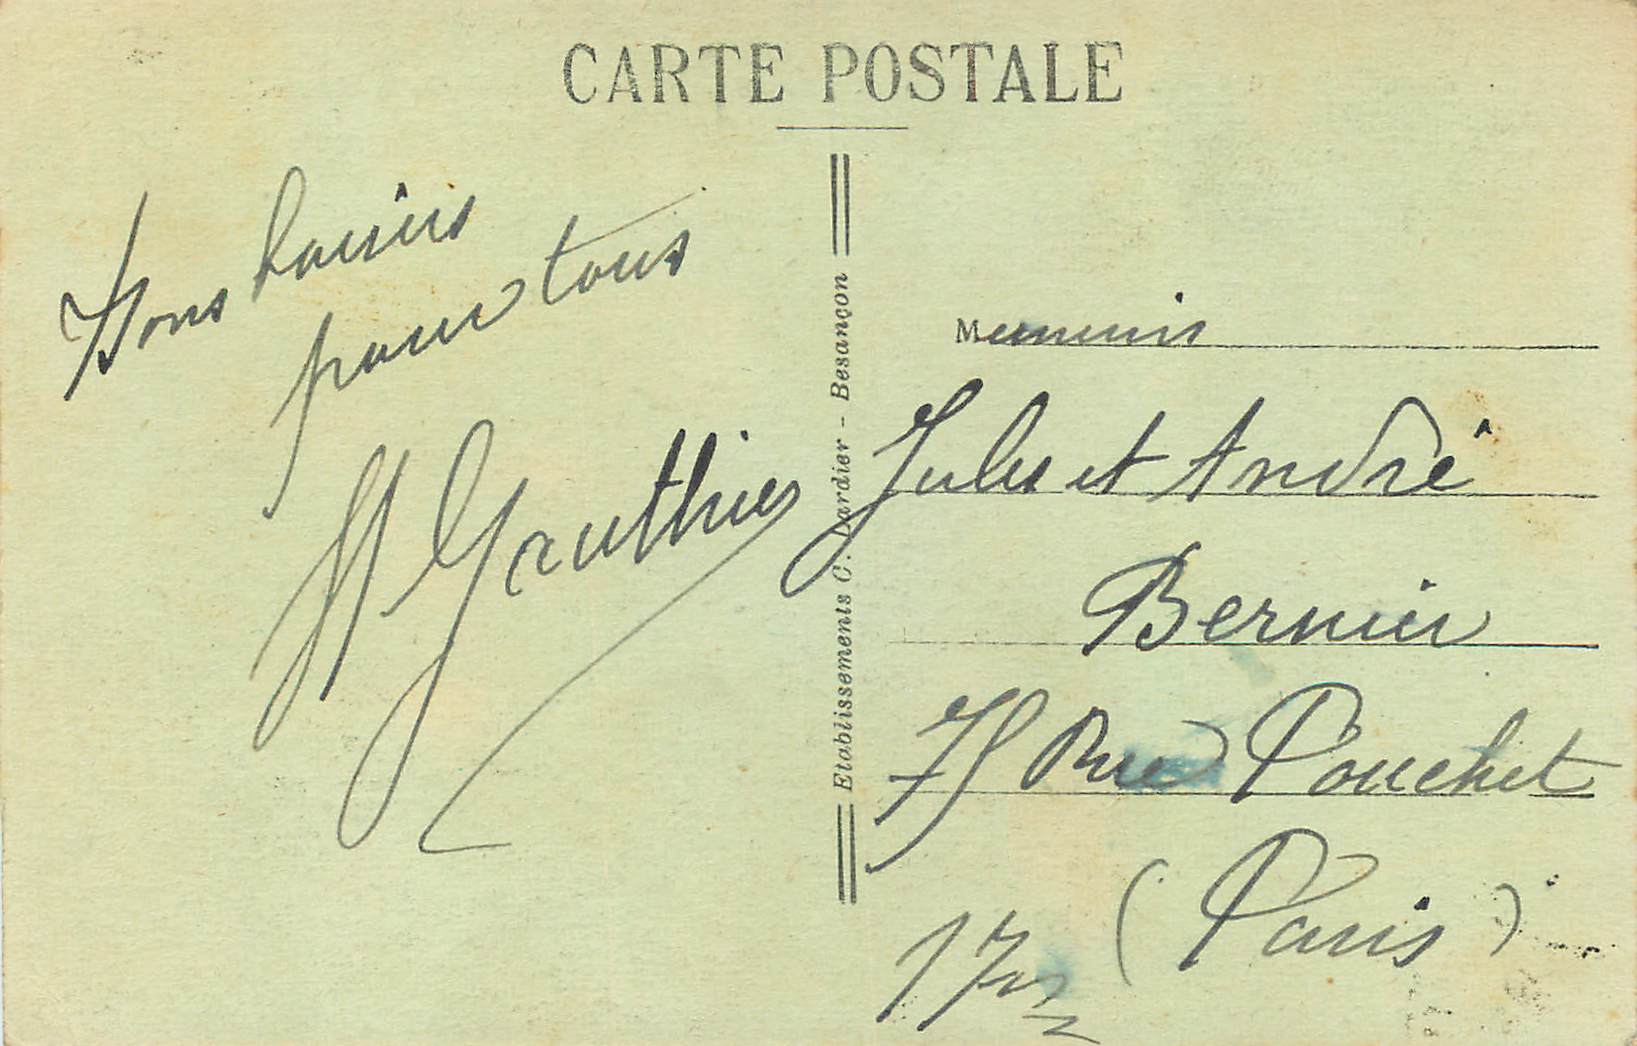 CARTE POSTALE
Bons baisers
pour tous
H Gauthier
Etablissements C. Lardier - Besançon
Messieurs
Jules et André
Bernier
75 Rue Pouchet
(Paris)
17es